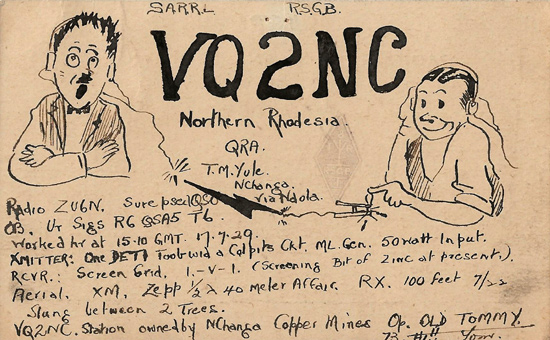 S.A.R.R.L R.S.G.B.
VQ2NC
Northern Rhodesia.
QRA.
T.M. Yule.
Nchanga.
Via Ndola.
Radio ZU6N. Sure psed QSO
OB. Ur Sigs R6 QSA5 T6.
Worked hr at 15-10 GMT. 17.7.29.
XMITTER: One DET1 Toot wid a Colpits Ckt. ML. Gen. 50 watt Input.
RCVR: Screen Grid. 1-V-1. (Screening Bit of Zinc at present).
Aerial. XM, Zepp ½ λ 40 meter Affair. RX. 100 feet 7/22
Slung between 2 Trees.
VQ2NC. Station owned by NChanga Copper Mines Op. OLD TOMMY.
73